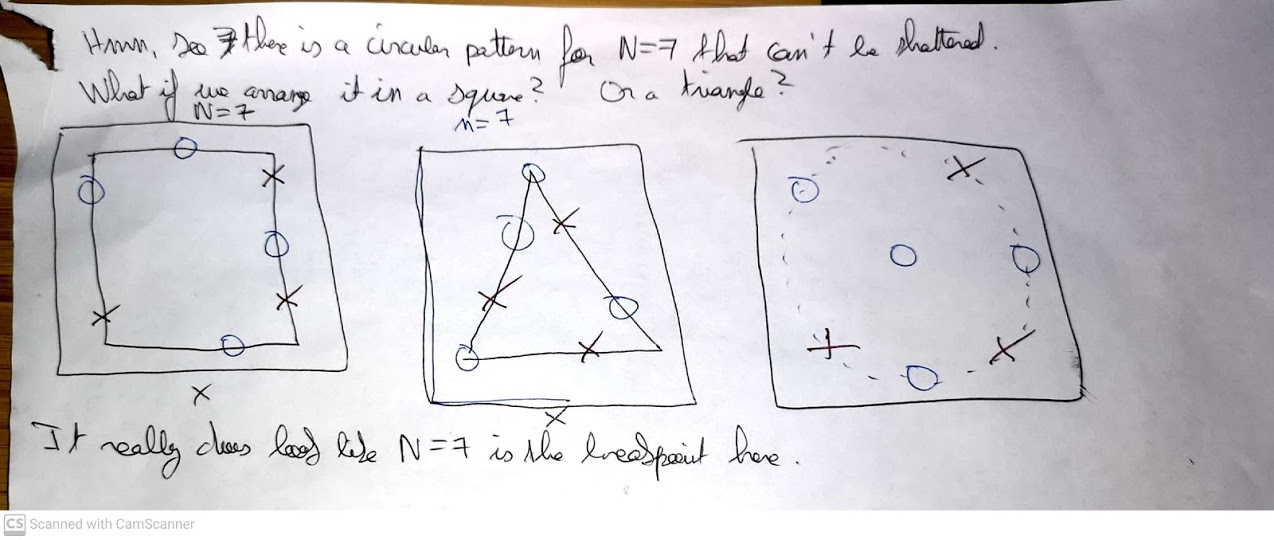 Hmm, so there is a circular pattern for N=7 that can't be shattered.
What if we arrange it in a square? Or a triangle?
N=7
n=7
It really does look like N=7 is the breakpoint here.
CS Scanned with CamScanner